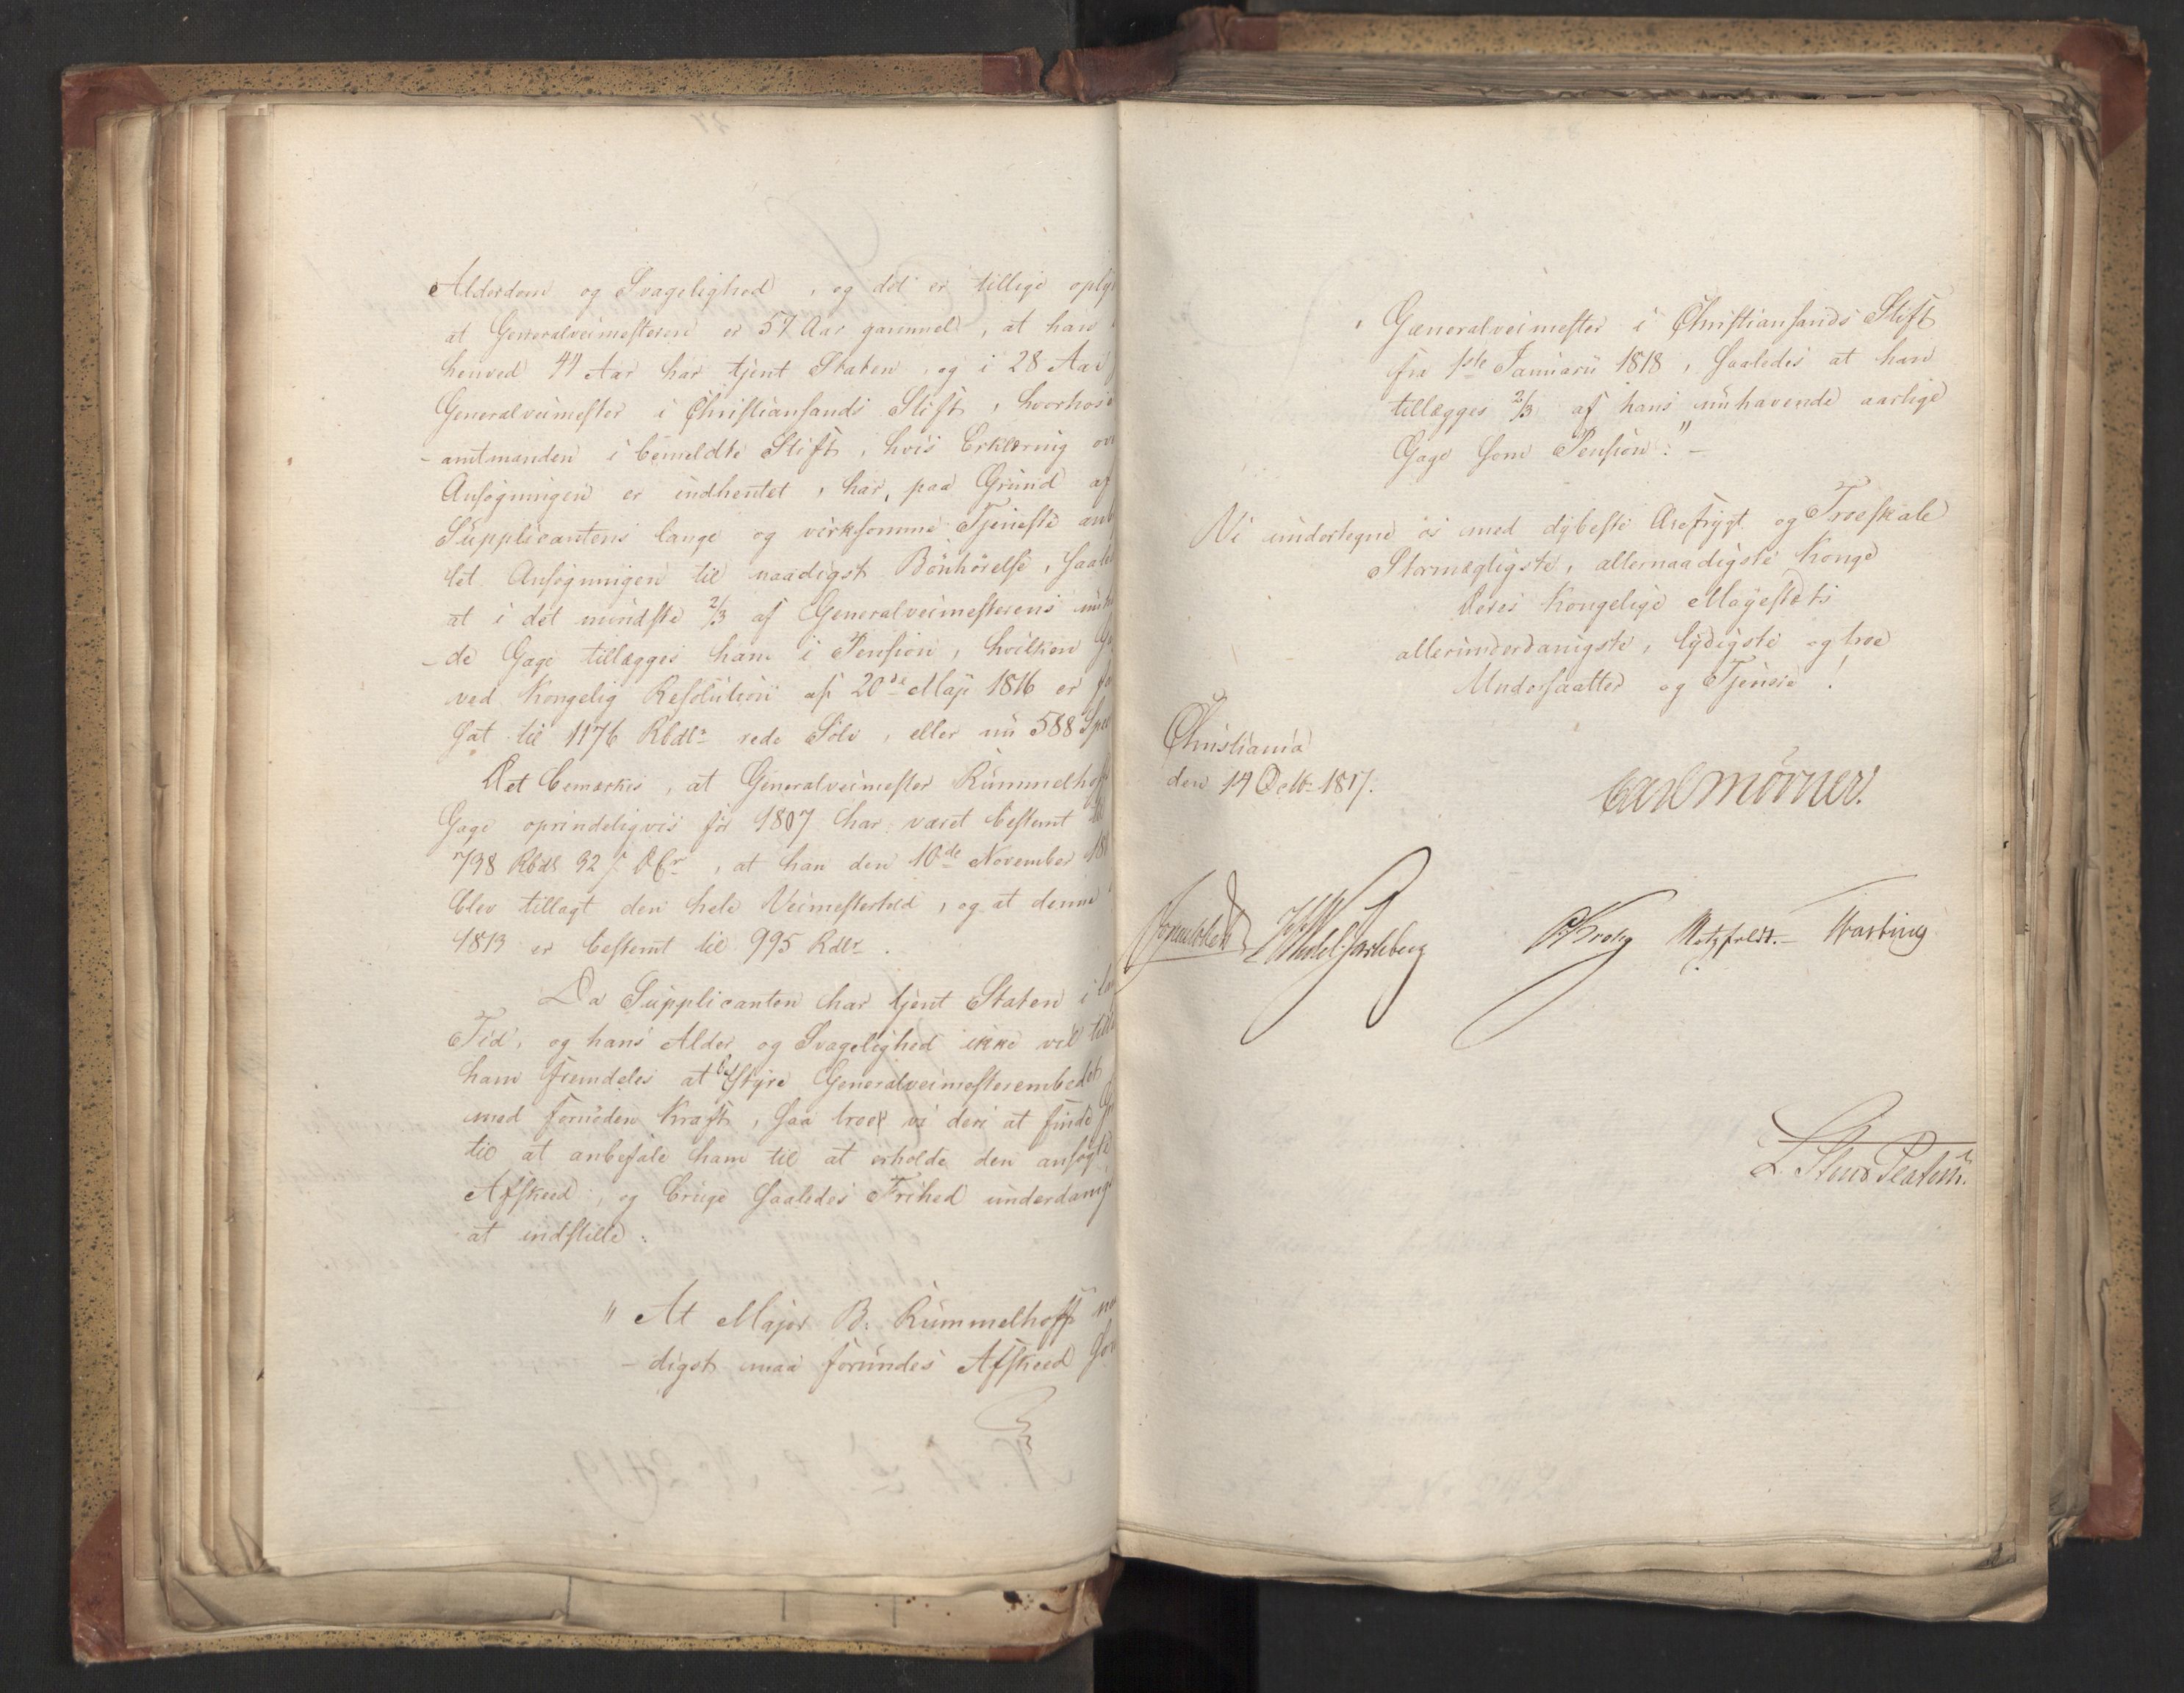 Alderdom og Svagelighed, og det er tillige oply
at Generalveimesteren er 57 Aar gammel, at han
henved 44 Aar har tjent Staten, og i 28 Aar
Generalveimester i Christiansands Stift, hvorhos
-amtmanden i bemeldte Stift, hvis Erklæring ov
Ansøgningen er indhentet, har, paa Grund af
Supplicantens lange og virksomme Tjeneste anb
let Ansøgningen til naadigst Bönhörelse, saale
at i det mindste 2/3 af Generalveimesterens nuh
-de Gage tillægges ham i Pension, hvilken Ga
ved Kongelig Resolution af 20de Maji 1816 er fo
sat til 1176 Rbdlr rede Sölv, eller nu 588 Spe
Det bemærkes, at Generalveimester Rummelhoff
Gage oprindeligvis för 1807 har været bestemt til
798 Rbdl 32 s DCr, at han den 10de November 180
blev tillagt den hele Veimestertold, og at denne
1813 er bestemt til 995 Rdlr.
Da Supplicanten har tjent Staten i la
Tid, og hans Alder og Svagelighed ikke vil till
ham fremdeles at bestyre Generalveimesterembedet
med fornöden Kraft, saa troer vi deri at finde Gr
til at anbefale ham til at erholde den ansögte
Afskeed, og bruge saaledes Frihed underdanigs
at indstille:
" At Major B. Rummelhoff na
-digst maa forundes Afskeed som
Generalveimester i Christiansands Stift
fra 1ste Januarii 1818, saaledes at han
tillægges 2/3 af hans nuhavende aarlige
Gage som Pension." -
Vi undertegne os med dybeste Ærefrygt og Troeskab
Stormægtigste, allernaadigste Konge
Deres Kongelige Majestæts
allerunderdanigste, lydigste og troe
Undersaatter og Tjenere!
Christiania
den 14 Octbr 1817.
Carl Mörner.
Sommerhielm Wedel-Jarlsberg Krohg Motzfeldt. Hasting